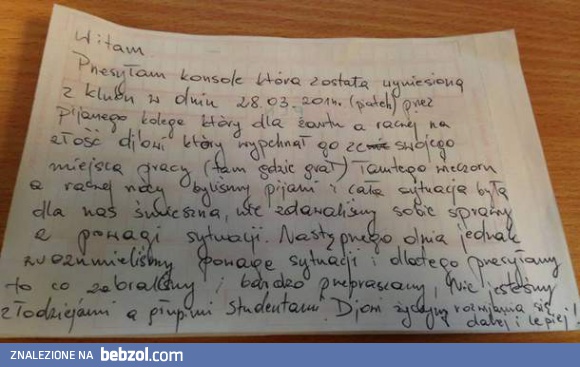 Witam.
Przesyłam konsole która została wyniesiona
z klubu w dniu 28.03.2014r. (patch) przez
pijanego kolege który dla żartu a raczej na
złość djowi który wypchnął go ze swojego
miejsca pracy (tam gdzie grał) Tamtego wieczoru
a raczej nocy byliśmy pijani i cała sytuacja była
dla nas śmieszna, nie zdawaliśmy sobie sprawy
z powagi sytuacji. Następnego dnia jednak
zrozumieliśmy powagę sytuacji i dlatego przesyłamy
to co zabraliśmy i bardzo przepraszamy, Nie jesteśmy
złodziejami a głupimi studentami. Djowi życzymy rozwijania się
dalej i lepiej!
ZNALEZIONE NA bebzol.com